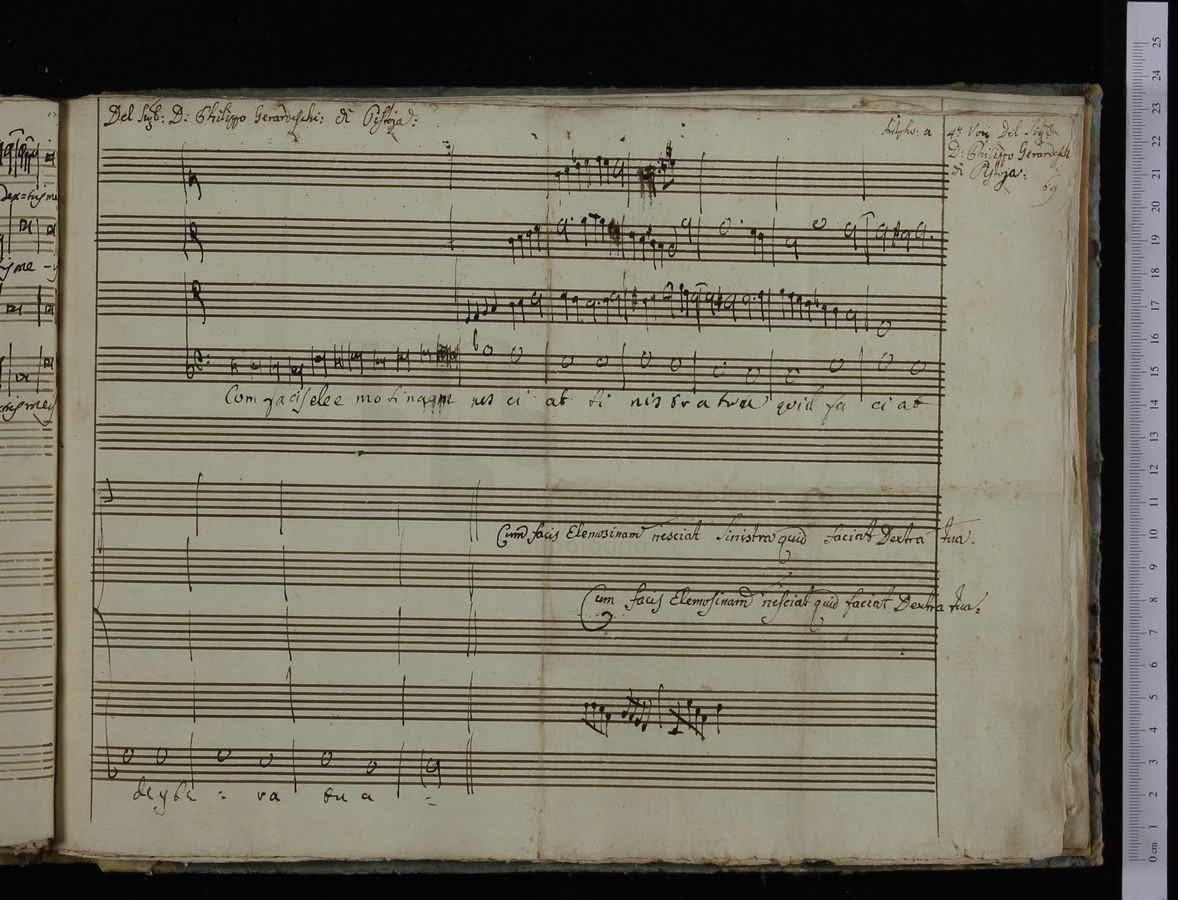 Del Sigr: D: Philippo Gerardeschi: di Pistoja:
Antipho: a 4: Voci Del Sigr:
D: Philippo Gerardeschi
di Pistoja:
69
Com facis elee mo si nam nes ci at si nis tra tua quid fa ci at
Cum facis Elemosinam nesciat Sinistra quid faciat Dextra tua.
Cum facis Elemosinam nesciat quid faciat Dextra tua:
ra tu a